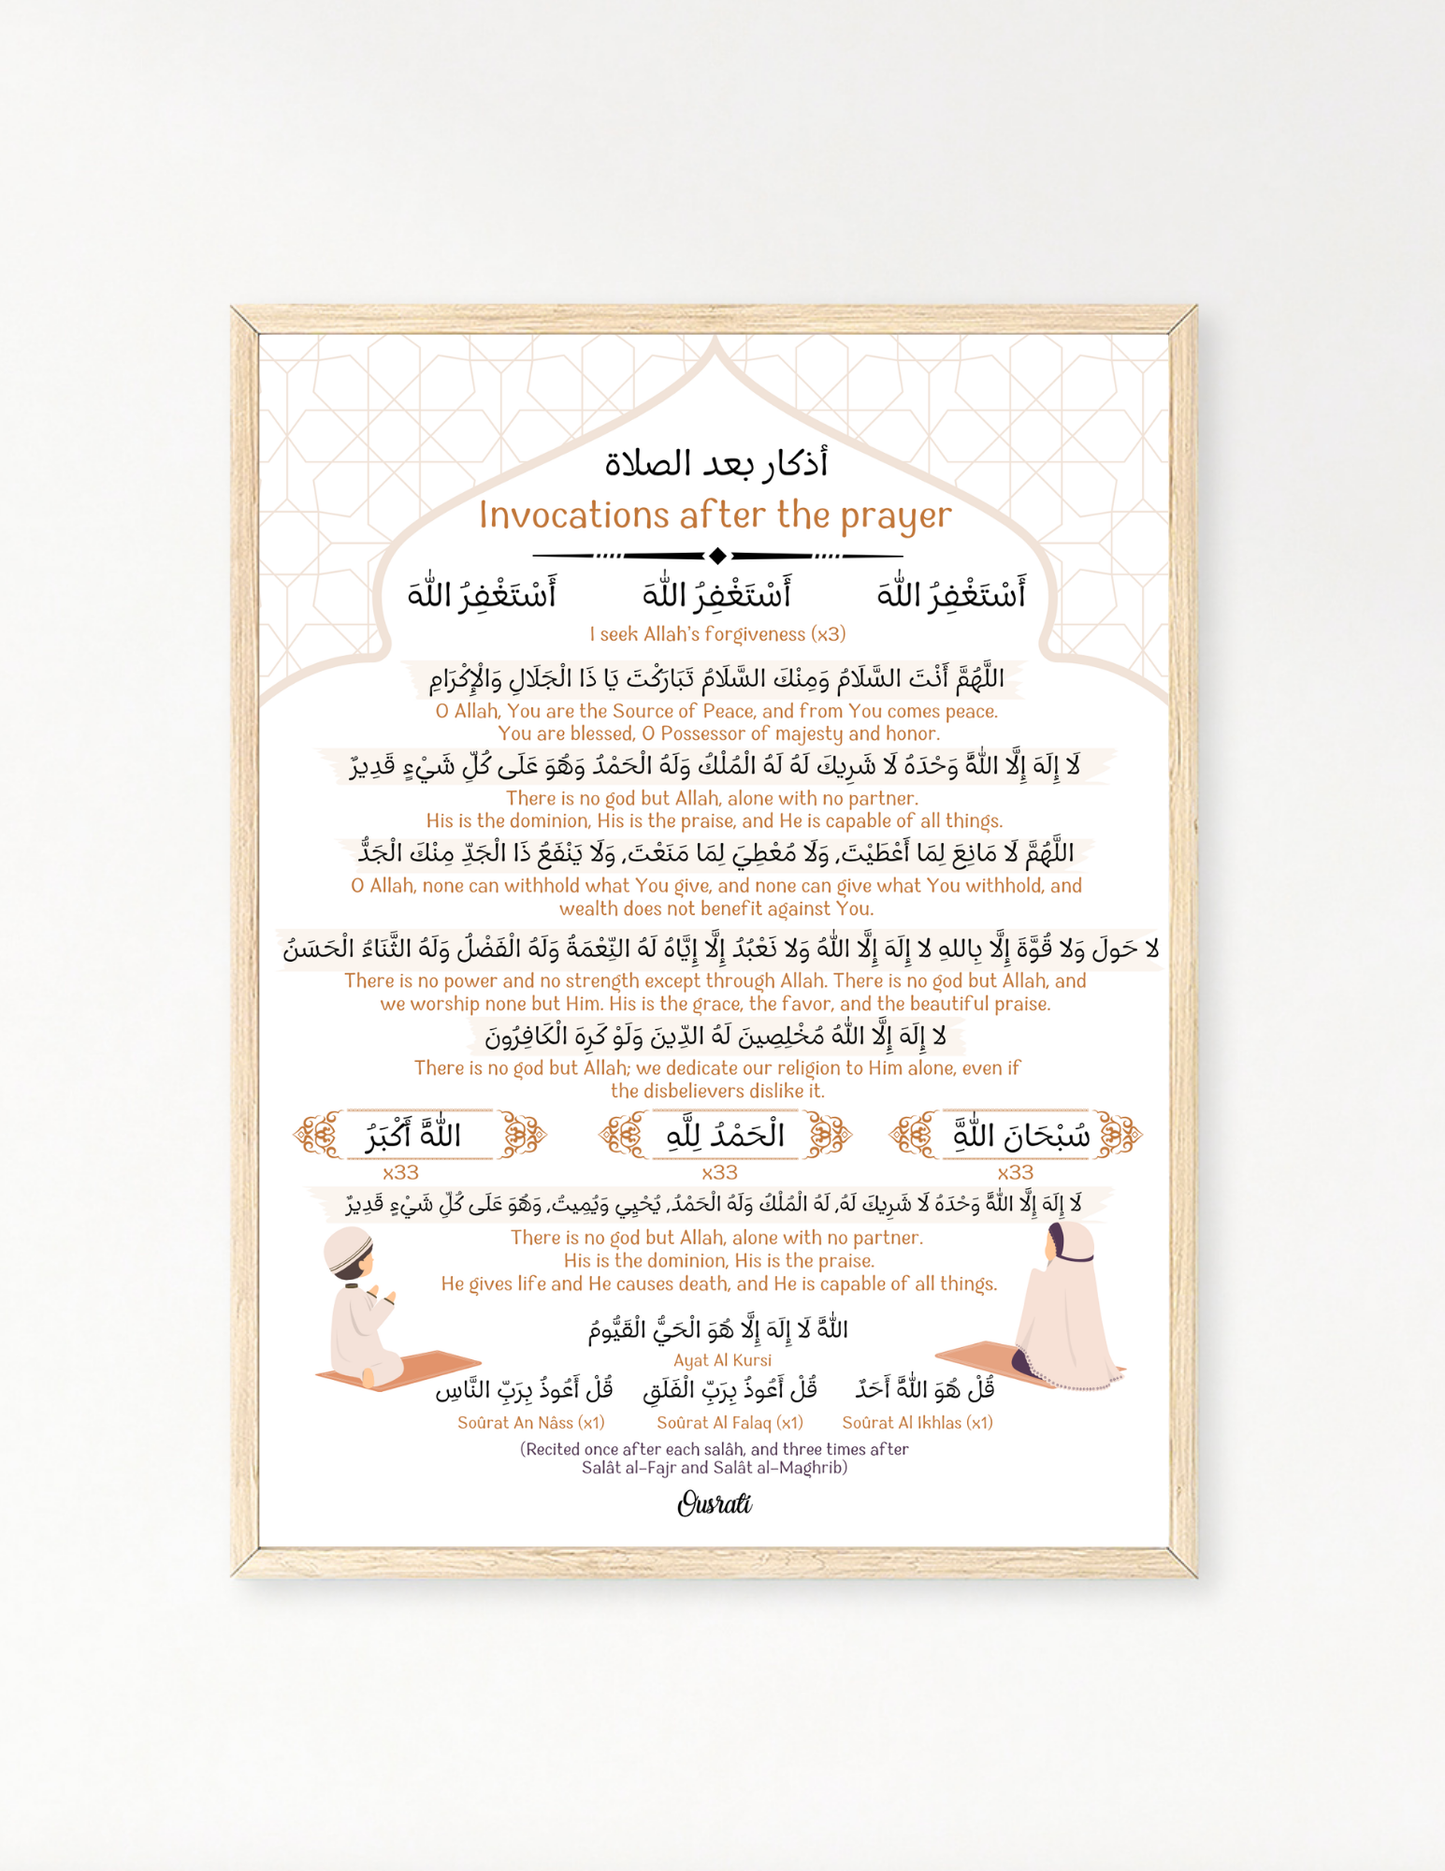 أذكار بعد الصلاة
Invocations after the prayer
أَسْتَغْفِرُ اللَّهَ أَسْتَغْفِرُ اللَّهَ أَسْتَغْفِرُ اللَّهَ
I seek Allah's forgiveness (x3)
اللَّهُمَّ أَنْتَ السَّلَامُ وَمِنْكَ السَّلَامُ تَبَارَكْتَ يَا ذَا الْجَلَالِ وَالْإِكْرَامِ
O Allah, You are the Source of Peace, and from You comes peace.
You are blessed, O Possessor of majesty and honor.
لَا إِلَهَ إِلَّا اللَّهَُ وَحْدَهُ لَا شَرِيكَ لَهُ لَهُ الْمُلْكُ وَلَهُ الْحَمْدُ وَهُوَ عَلَى كُلِّ شَيْءٍ قَدِيرٌ
There is no god but Allah, alone with no partner.
His is the dominion, His is the praise, and He is capable of all things.
اللَّهُمَّ لَا مَانِعَ لِمَا أَعْطَيْتَ, وَلَا مُعْطِيَ لِمَا مَنَعْتَ, وَلَا يَنْفَعُ ذَا الْجَدِّ مِنْكَ الْجَدُّ
O Allah, none can withhold what You give, and none can give what You withhold, and
wealth does not benefit against You.
لا حَولَ وَلا قُوَّةَ إِلَّا بِاللهِ لا إِلَهَ إِلَّا اللَّهُ وَلا نَعْبُدُ إِلَّا إِيَّاهُ لَهُ النِّعْمَةُ وَلَهُ الْفَضْلُ وَلَهُ الثَّنَاءُ الْحَسَنُ
There is no power and no strength except through Allah. There is no god but Allah, and
we worship none but Him. His is the grace, the favor, and the beautiful praise.
لا إِلَهَ إِلَّا اللَّهُ مُخْلِصِينَ لَهُ الدِّينَ وَلَوْ كَرِهَ الْكَافِرُونَ
There is no god but Allah; we dedicate our religion to Him alone, even if
the disbelievers dislike it.
سُبْحَانَ اللَّهَِ الْحَمْدُ لِلَّهِ اللَّهَُ أَكْبَرُ
x33 x33 x33
لَا إِلَهَ إِلَّا اللَّهَُ وَحْدَهُ لَا شَرِيكَ لَهُ, لَهُ الْمُلْكُ وَلَهُ الْحَمْدُ, يُحْيِي وَيُمِيتُ, وَهُوَ عَلَى كُلِّ شَيْءٍ قَدِيرٌ
There is no god but Allah, alone with no partner.
His is the dominion, His is the praise.
He gives life and He causes death, and He is capable of all things.
اللَّهَُ لَا إِلَهَ إِلَّا هُوَ الْحَيُّ الْقَيُّومُ
Ayat Al Kursi
قُلْ هُوَ اللَّهَُ أَحَدٌ قُلْ أَعُوذُ بِرَبِّ الْفَلَقِ قُلْ أَعُوذُ بِرَبِّ النَّاسِ
Soûrat An Nâss (x1) Soûrat Al Falaq (x1) Soûrat Al Ikhlas (x1)
(Recited once after each salâh, and three times after
Salât al-Fajr and Salât al-Maghrib)
Ousrati